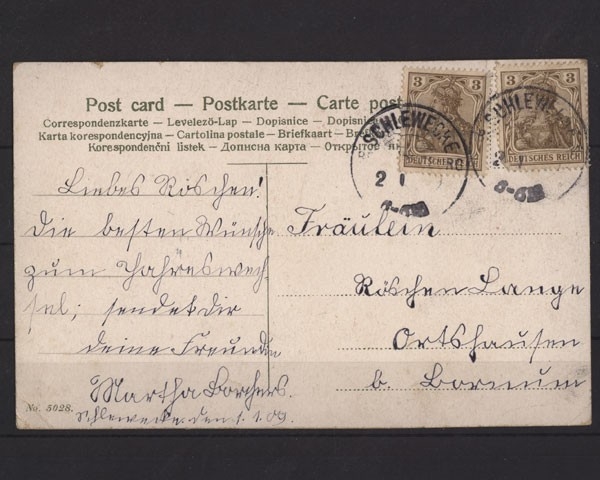 Post card — Postkarte — Carte post
Correspondenzkarte — Levelező-Lap — Dopisnice — Dopisni
Karta korespondencyjna — Cartolina postale — Briefkaart — Br
Korespondenční lístek — Дописна карта — Открытое
3 3
3 3
DEUTSCHES REICH
DEUTSCHES REICH
SCHLEWECKE
2 1
SCHLEWE
2
Liebes Röschen!
Die besten Wünsche
zum Jahreswech-
sel; sendet dir
deine Freundin
Martha Borchers.
Schlewecke den 1. 1. 09.
Fräulein
Röschen Lange
Ortshausen
b. Bornum
No. 5028.